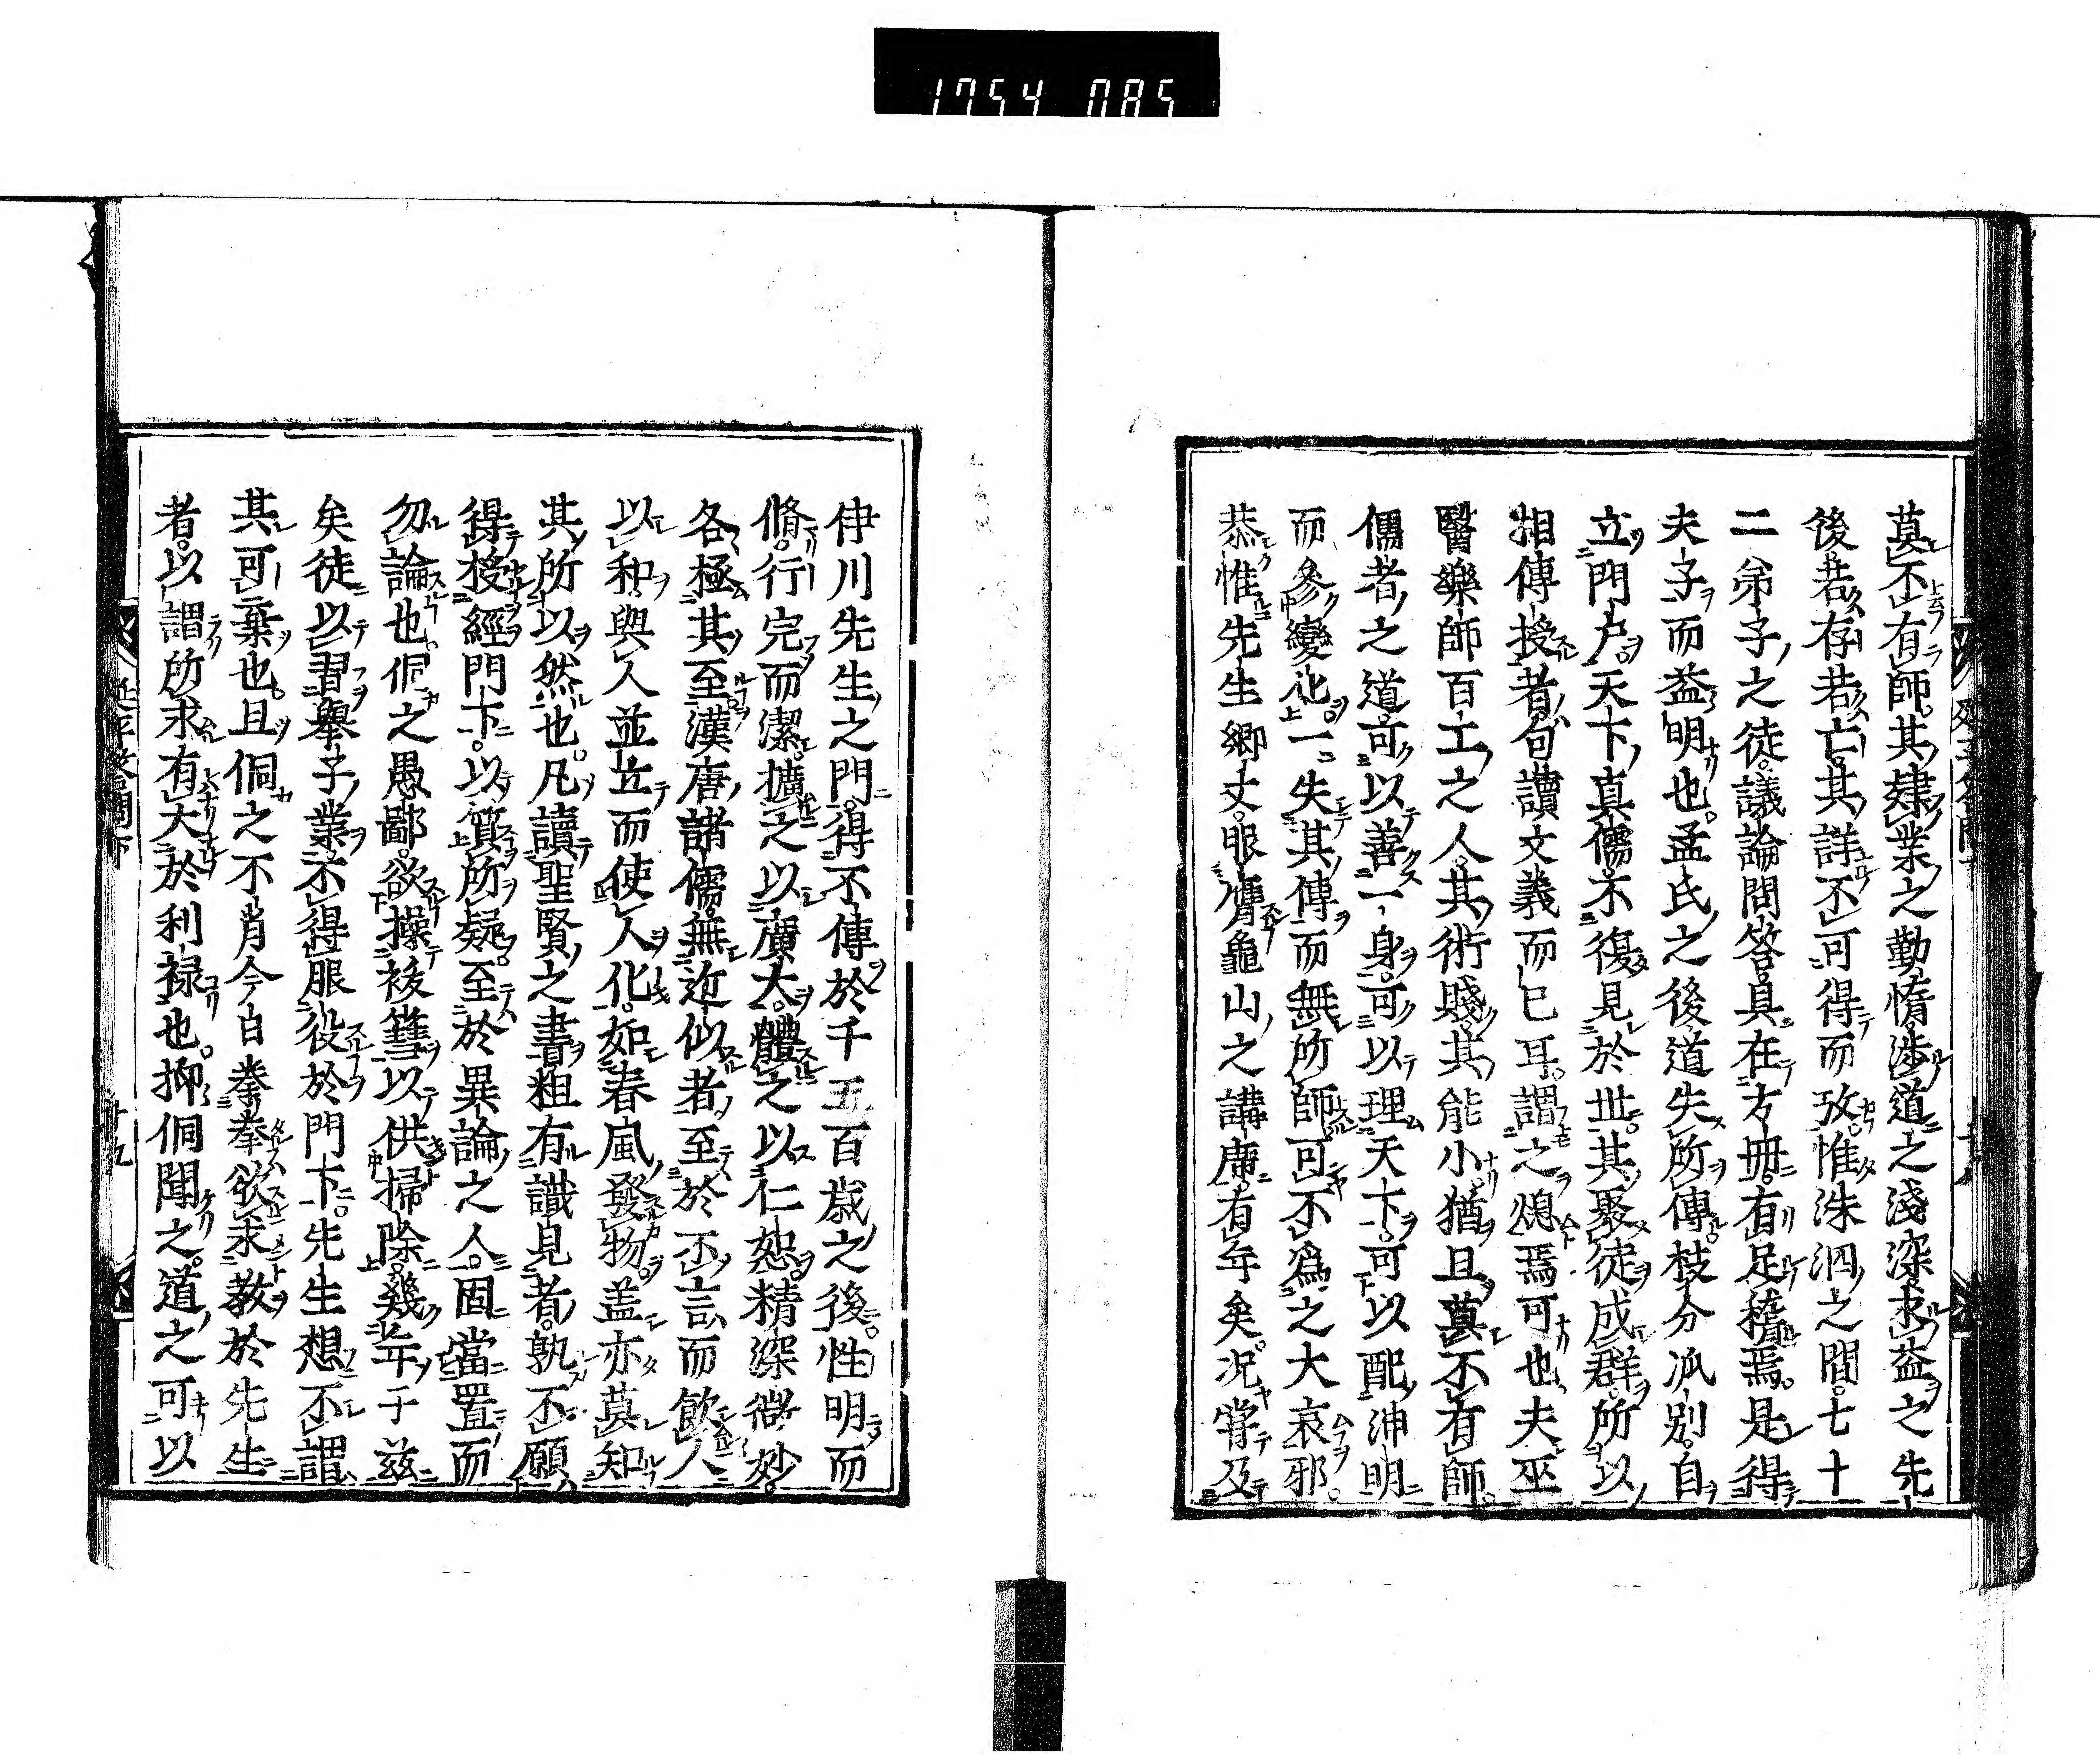 1754 085
莫不有師其肄業之勤惰渉道之淺深求益之先
後若存若亡其詳不可得而攷惟洙泗之間七十
二弟子之徒議論問答具在方冊有足稽焉是得
夫子而益明也孟氏之後道失所傳枝分派別自
立門戶天下真儒不復見於世其聚徒成群所以
相傳授者句讀文義而已耳謂之熄焉可也夫巫
醫樂師百工之人其術賤其能小猶且莫不有師
儒者之道可以善一身可以理天下可以配神明
而參變化一失其傳而無所師可不爲之大哀邪
恭惟先生鄉丈服膺龜山之講席有年矣況嘗及
伊川先生之門得不傳於千五百歲之後性明而
脩行完而潔擴之以廣大體之以仁恕精深微妙
各極其至漢唐諸儒無近似者至於不言而飲人
以和與人並立而使人化如春風發物盖亦莫知
其所以然也凡讀聖賢之書粗有識見者孰不願
得授經門下以質所疑至於異論之人固當置而
勿論也侗之愚鄙欲操篲以供掃除幾年于兹
矣徒以習舉子業不得服役於門下先生想不謂
其可棄也且侗之不肖今日拳拳欲求教於先生
者以謂所求有大於利禄也抑侗聞之道之可以
延平答問下
十九